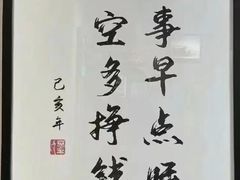 事早点睡
空多挣钱
己亥年